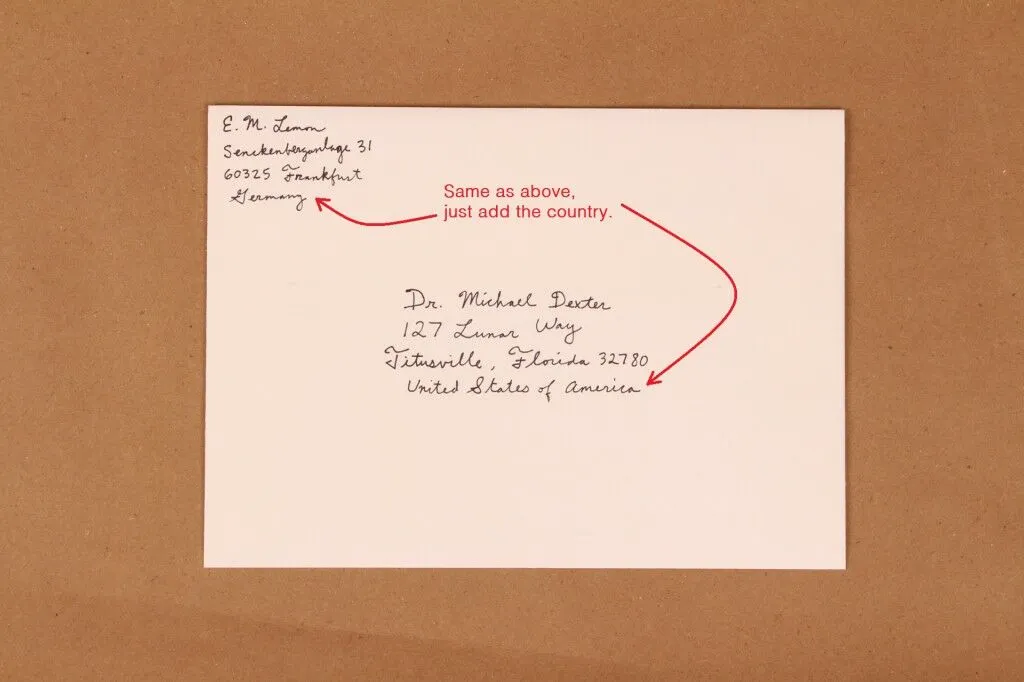 E. M. Lemon
Senckenberganlage 31
60325 Frankfurt
Germany
Same as above,
just add the country.
Dr. Michael Dexter
127 Lunar Way
Titusville, Florida 32780
United States of America